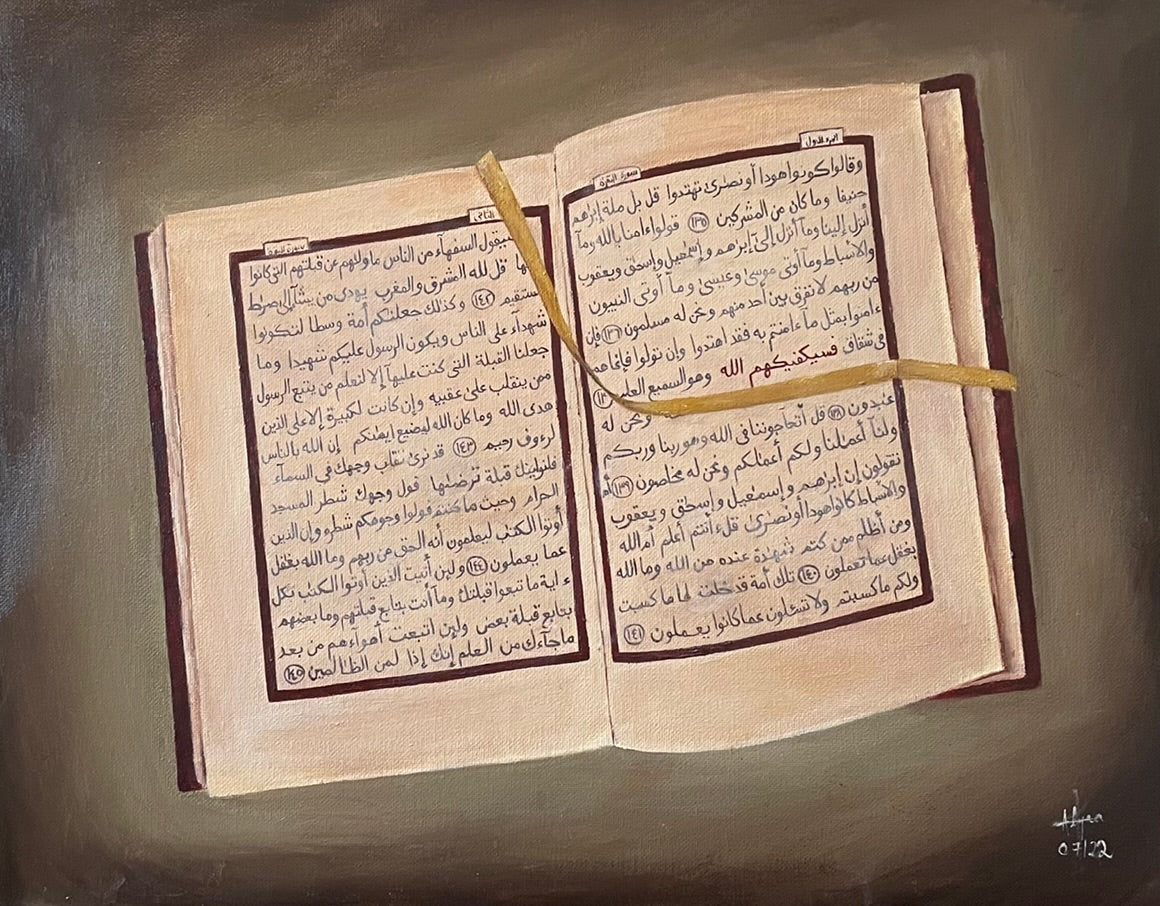 الجزء الاول
سورة البقرة
وقالوا كونوا هودا أو نصرى تهتدوا قل بل ملة إبرهم
حنيفا وما كان من المشركين ١٣٥ قولوا ءامنا بالله وما
أنزل إلينا وما أنزل إلى إبرهم وإسمعيل وإسحق ويعقوب
والاسباط وما أوتى موسى وعيسى وما أوتى النبيون
من ربهم لا نفرق بين أحد منهم ونحن له مسلمون ١٣٦ فإن
ءامنوا بمثل ما ءامنتم به فقد اهتدوا وإن تولوا فإنما هم
فى شقاق فسيكفيكهم الله وهو السميع العلم
ونحن له
عبدون ١٣٨ قل أتحاجوننا فى الله وهو ربنا وربكم
ولنا أعملنا ولكم أعملكم ونحن له مخلصون ١٣٩ أم
تقولون إن إبرهم وإسمعيل وإسحق ويعقوب
والاسباط كانوا هودا أو نصرى قل ءأنتم أعلم أم الله
ومن أظلم ممن كتم شهدة عنده من الله وما الله
بغفل عما تعملون ١٤٠ تلك أمة قد خلت لها ما كسبت
ولكم ما كسبتم ولا تسئلون عما كانوا يعملون ١٤١
الثانى
سورة البقرة
سيقول السفهاء من الناس ما ولهم عن قبلتهم التى كانوا
قل لله المشرق والمغرب يهدى من يشاء إلى صرط
مستقيم ١٤٢ وكذلك جعلنكم أمة وسطا لتكونوا
شهداء على الناس ويكون الرسول عليكم شهيدا وما
جعلنا القبلة التى كنت عليها إلا لنعلم من يتبع الرسول
ممن ينقلب على عقبيه وإن كانت لكبيرة إلا على الذين
هدى الله وما كان الله ليضيع إيمنكم إن الله بالناس
لرءوف رحيم ١٤٣ قد نرى تقلب وجهك فى السماء
فلنولينك قبلة ترضها فول وجهك شطر المسجد
الحرام وحيث ما كنتم فولوا وجوهكم شطره وإن الذين
أوتوا الكتب ليعلمون أنه الحق من ربهم وما الله بغفل
عما يعملون ١٤٤ ولئن أتيت الذين أوتوا الكتب بكل
ءاية ما تبعوا قبلتك وما أنت بتابع قبلتهم وما بعضهم
بتابع قبلة بعض ولئن اتبعت أهواءهم من بعد
ما جاءك من العلم إنك إذا لمن الظالمين ١٤٥
07/22